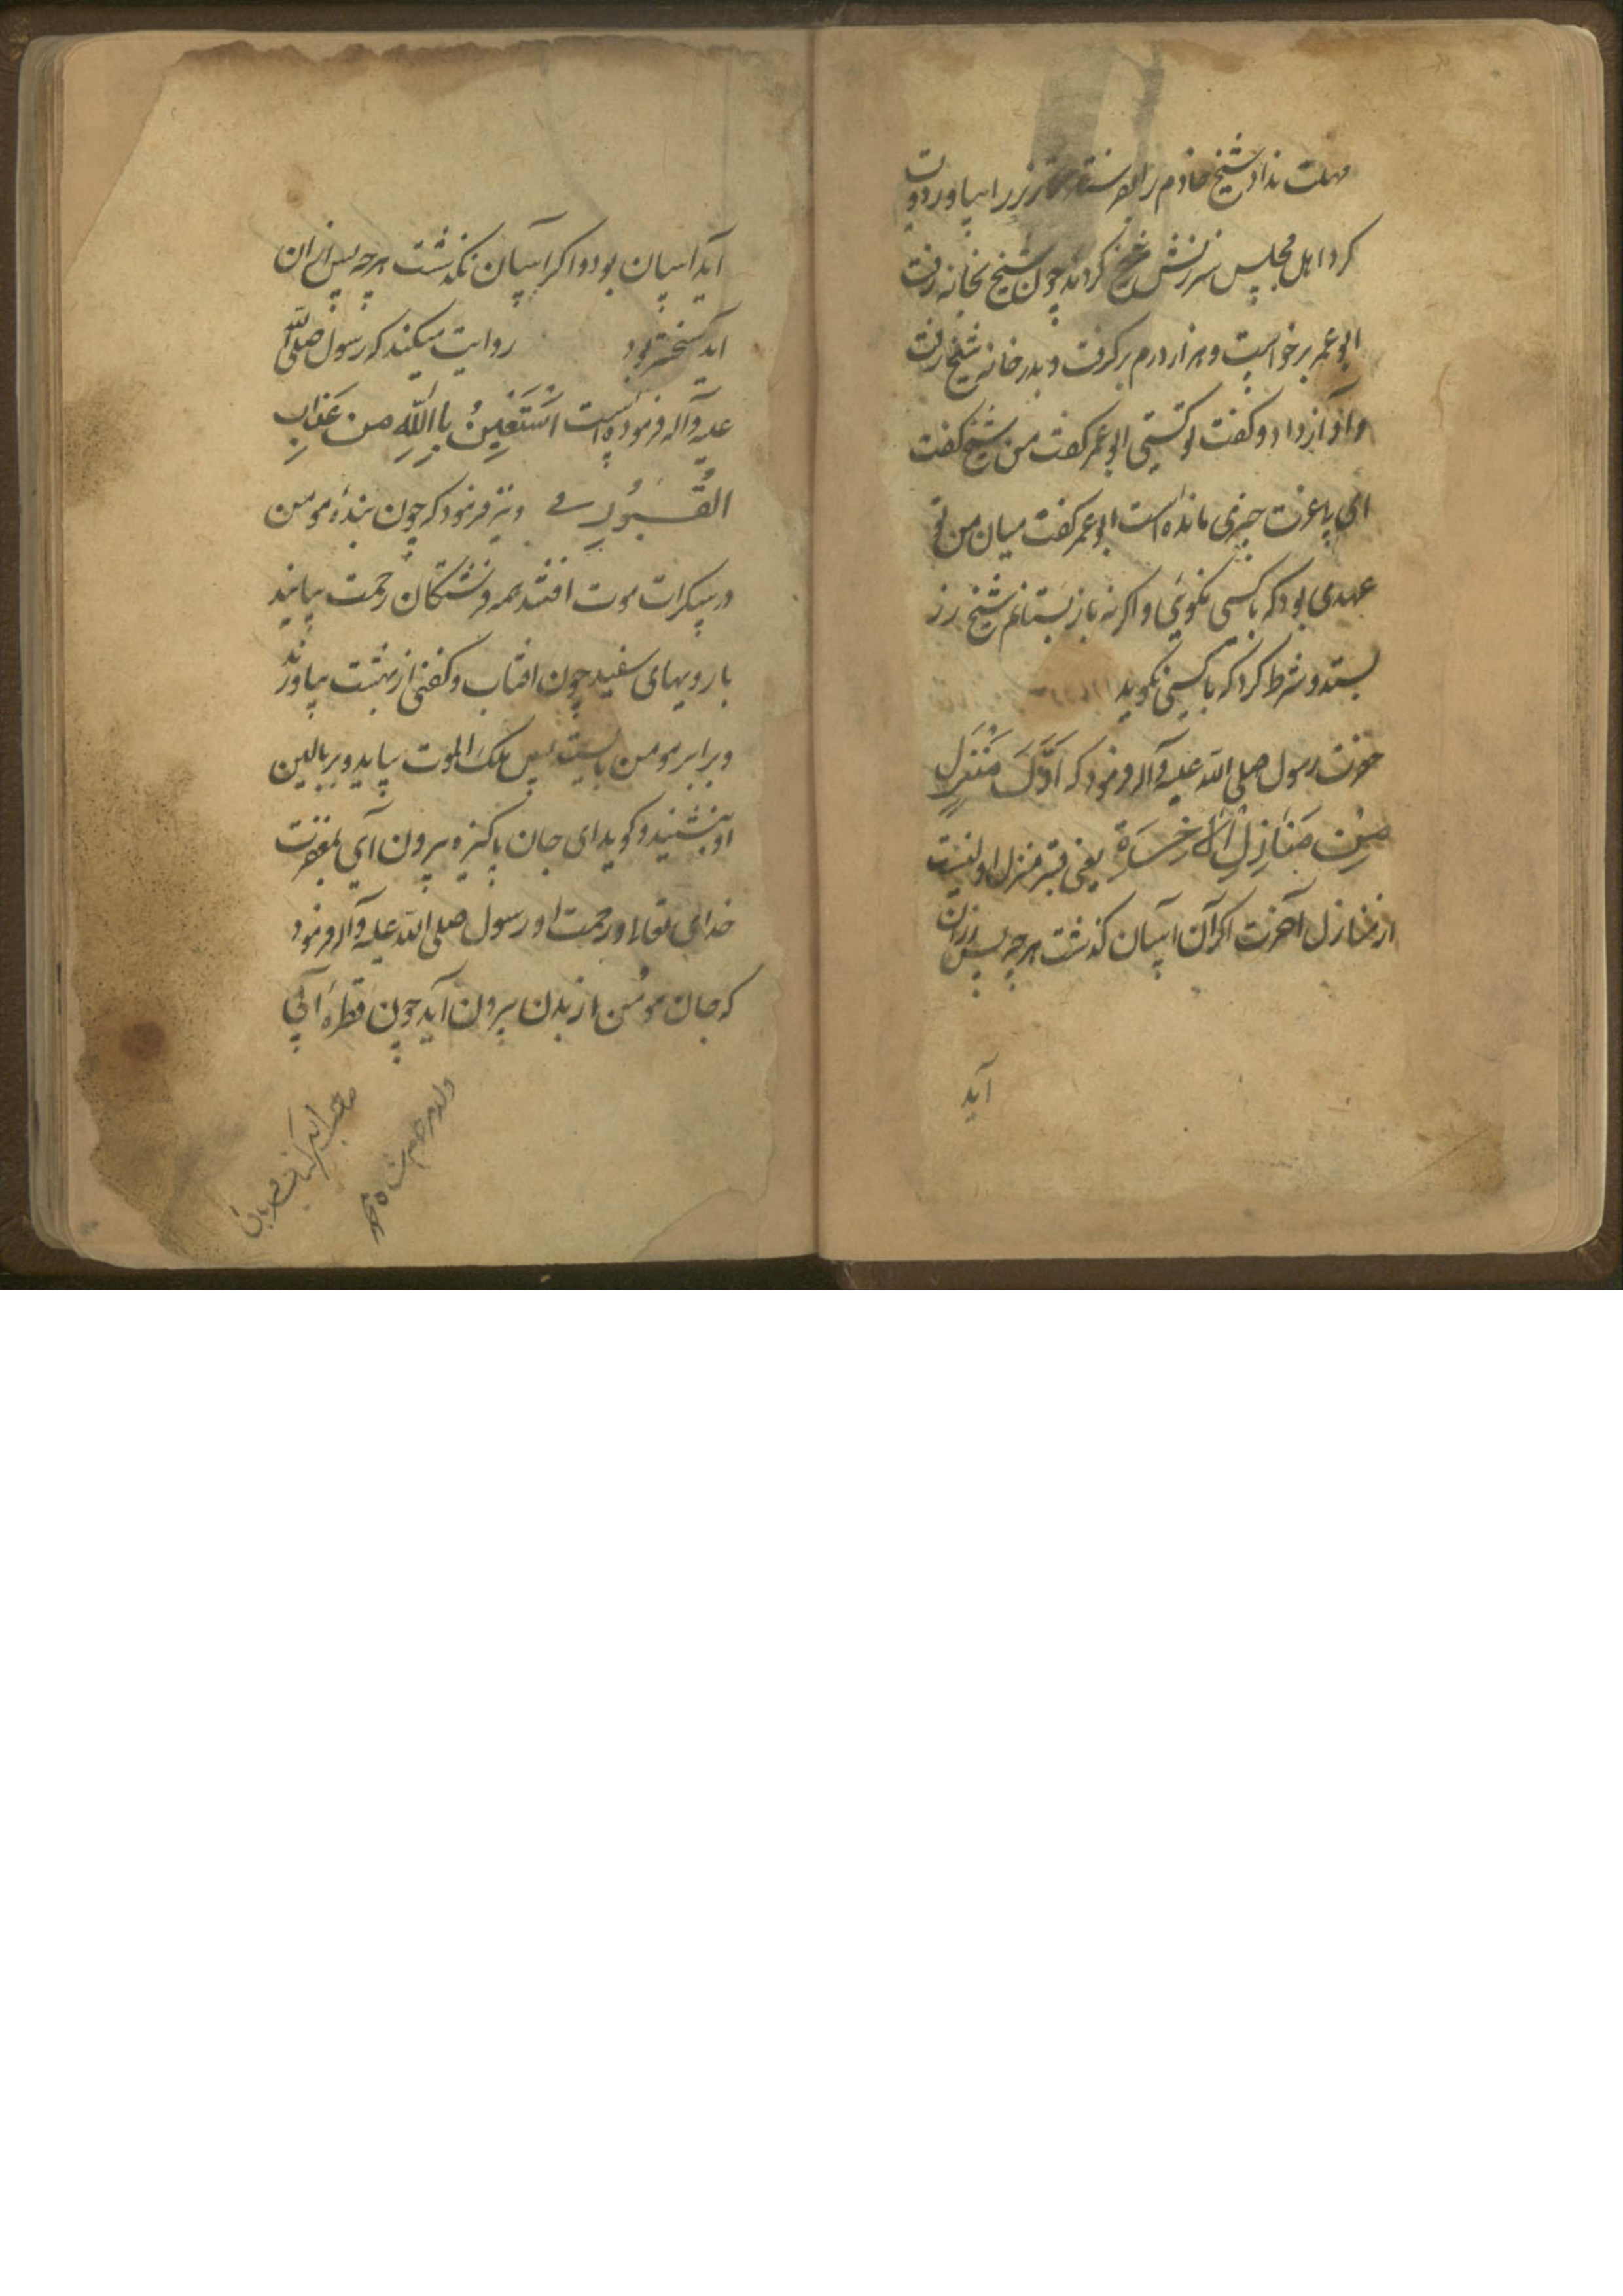 مهلت نداد شیخ خادم را بفرستاد تا زر را بیاورد و
کرد اهل مجلس سرزنش شیخ کردند چون شیخ بخانه رفت
ابو عمر برخواست و هزار درم برکرفت و بدر خانه شیخ رفت
و آواز داد و کفت تو کیستی ابو عمر کفت من شیخ کفت
ای با عمر چیزی مانده است ابو عمر کفت میان من تو
عهدی بود که با کسی نکویی و اکر نه باز بستانم شیخ زر
بستد و شرط کرد که با کسی نکوید
حضرت رسول صلی الله علیه و آله فرمود که اَوَّلَ مَنْزِلٍ
مِنْ مَنَازِلِ الآخِرَةِ یعنی قبر منزل اولیست
از منازل آخرت اکر آن آسان کذشت هر چه پس از آن
آید
آید آسان بود و اکر آسان نکذشت هر چه پس از ان
آید سختر بود روایت میکنند که رسول صلی الله
علیه و آله فرموده است اَسْتَعِینُ بِاللّهِ مِن عَذابِ
القُبُورِ و نیز فرمود که چون بندهٔ مومن
در سکرات موت افتد همه فرشتکان رحمت بیایند
با رویهای سفید چون افتاب و کفنی از بهشت بیاورند
و برابر مومن بایستند پس ملک الموت بیاید و بر بالین
او بنشیند و کوید ای جان پاکیزه بیرون آی بمغفرت
خدای تعالی و رحمت او رسول صلی الله علیه و آله فرمود
که جان مومن از بدن بیرون آید چون قطرهٔ آبی